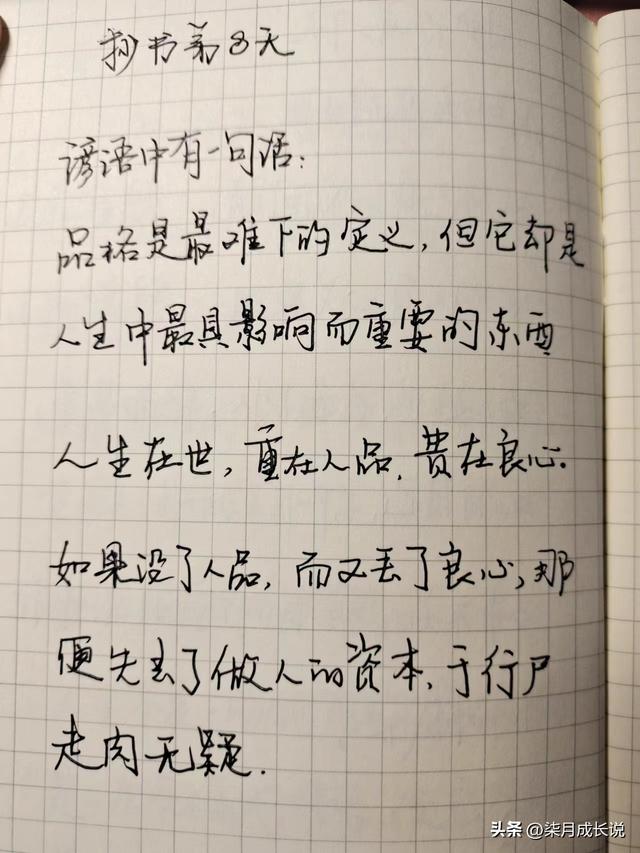 抄书第8天
谚语中有一句话：
品格是最难下的定义，但它却是
人生中最具影响而重要的东西
人生在世，重在人品，贵在良心.
如果没了人品，而又丢了良心，那
便失去了做人的资本、于行尸
走肉无疑.
头条 @柒月成长说